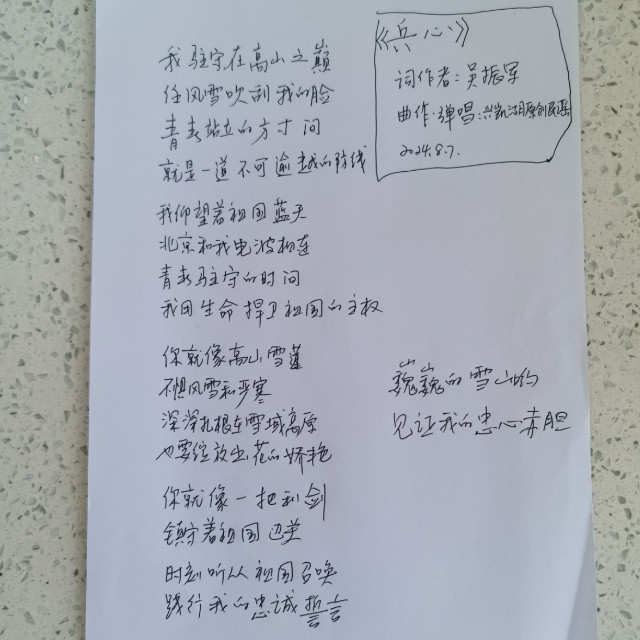 《兵心》
词作者：吴振军
曲作：弹唱：兴凯湖原创民谣
2024.8.7.
我驻守在高山之巅
任风雪吹刮我的脸
青春站立的方寸间
就是一道不可逾越的防线
我仰望着祖国蓝天
北京和我电波相连
青春驻守的时间
我用生命捍卫祖国的主权
你就像高山雪莲
不惧风雪和严寒
深深扎根在雪域高原
也要绽放出花的娇艳
你就像一把利剑
镇守着祖国边关
时刻听从祖国召唤
践行我的忠诚誓言
巍巍的雪山哟
见证我的忠心赤胆